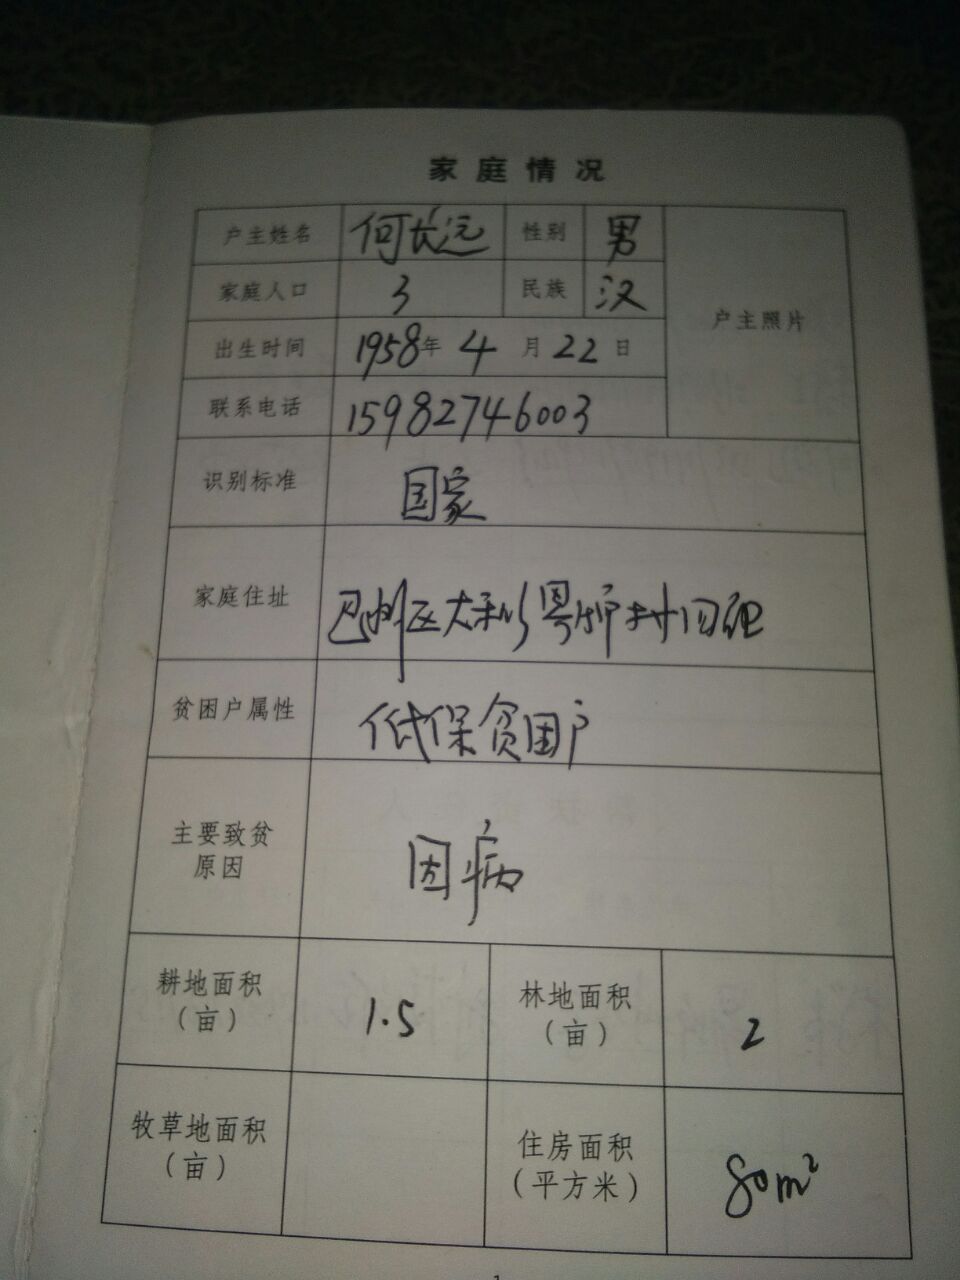 家庭情况
户主姓名 何长远 性别 男
家庭人口 3 民族 汉
户主照片
出生时间 1958年 4 月 22 日
联系电话 15982746003
识别标准 国家
家庭住址 巴州区大和 村四组
贫困户属性 低保贫困户
主要致贫
原因 因病
耕地面积
（亩） 1.5 林地面积
（亩） 2
牧草地面积
（亩） 住房面积
（平方米） 80m²
1